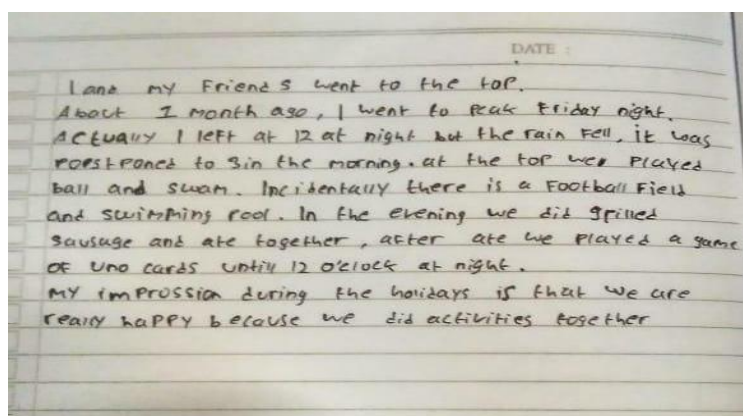 DATE :
I and my Friends went to the top.
About 1 month ago, I went to Peak Friday night.
Actually I left at 12 at night but the rain fell, it was
postponed to 3in the morning. at the top wer Played
ball and swam. Incidentally there is a Football Field
and swimming pool. In the evening we did grilled
sausage and ate together, after ate we played a game
of uno cards untill 12 o'clock at night.
my improssion during the holidays is that we are
really happy because we did activities together